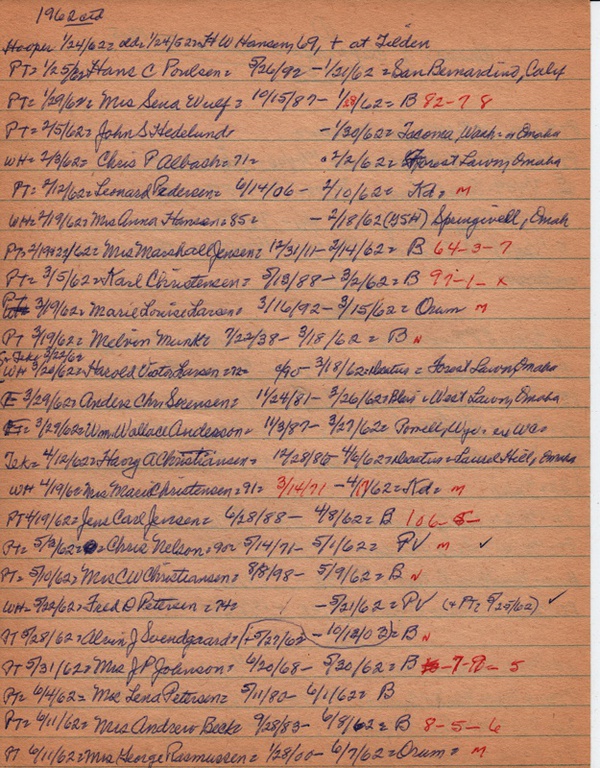 1962
Hooper 1/24/62= 1/24/52= H W Hansen, 69, + at Tilden
PT= 1/25/62 Hans C Poulsen= 5/26/92 - 1/21/62 = San Bernardino, Calif
PT= 1/29/62= Mrs Sena Wulf= 10/15/87- 1/28/62= B 82-7 8
PT= 2/5/62= John S Hedelund= -1/30/62= Tacoma, Wash= Omaha
WH= 2/3/62= Chris P Albach= 71= 2/2/62= Forest Lawn, Omaha
PT= 2/12/62= Leonard Pedersen= 6/14/06- 2/10/62= Kd= M
WH= 2/19/62= Mrs Anna Hanson= 85= -2/18/62 Springwell, Omah
PT= 2/19+22/62= Mrs Marshall Jensen= 12/31/11-2/14/62= B 64-3-7
PT= 3/5/62= Karl Christensen= 5/13/88- 3/2/62= B 97-1- x
PT 3/19/62= Marie Louise Larsen= 3/16/92-3/15/62= Orum M
PT 3/19/62= Melvin Munk= 7/22/38-3/18/62= B N
3/22/62
WH 3/20/62= Harold Victor Larsen=72= 90- 3/18/62= Decatur = Forest Lawn, Omaha
E 3/29/62= Anders Chr Sorensen= 11/24/81-3/26/62= Blair = West Lawn, Omaha
3/29/62= Wm. Wallace Anderson= 11/3/87- 3/27/62= Powell, Wyo= ex WC=
Tek= 4/12/62= Georg A Christiansen= 12/28/86- 4/6/62= Decatur= Laurel Hill, Omaha
WH 4/19/6= Mrs Marie Christensen=91= 3/14/71 -4/17/62= Kd= M
PT 4/19/62= Jens Carl Jensen= 6/28/88- 4/8/62= B 106-5-
PT= 5/3/62= Chris Nelson=90= 5/14/71- 5/1/62= PV M ✓
PT= 5/10/62= Mrs C W Christiansen= 8/8/98- 5/9/62= B N
WH= 5/22/62= Fred D Petersen=74= -5/21/62= PV (+PT= 5/25/62) ✓
PT 5/28/62= Alvin J Svendgaard= (+5/27/62- 10/12/03)= B N
PT 5/31/62= Mrs J P Johnson= 6/20/68- 5/30/62= B -7-9- 5
PT= 6/4/62= Mrs Lena Petersen= 5/11/80- 6/1/62= B
PT= 6/11/62= Mrs Andrew Beck= 9/28/83- 6/8/62= B 8-5-6
PT 6/11/62= Mrs George Rasmussen= 1/28/00- 6/7/62= Orum= M